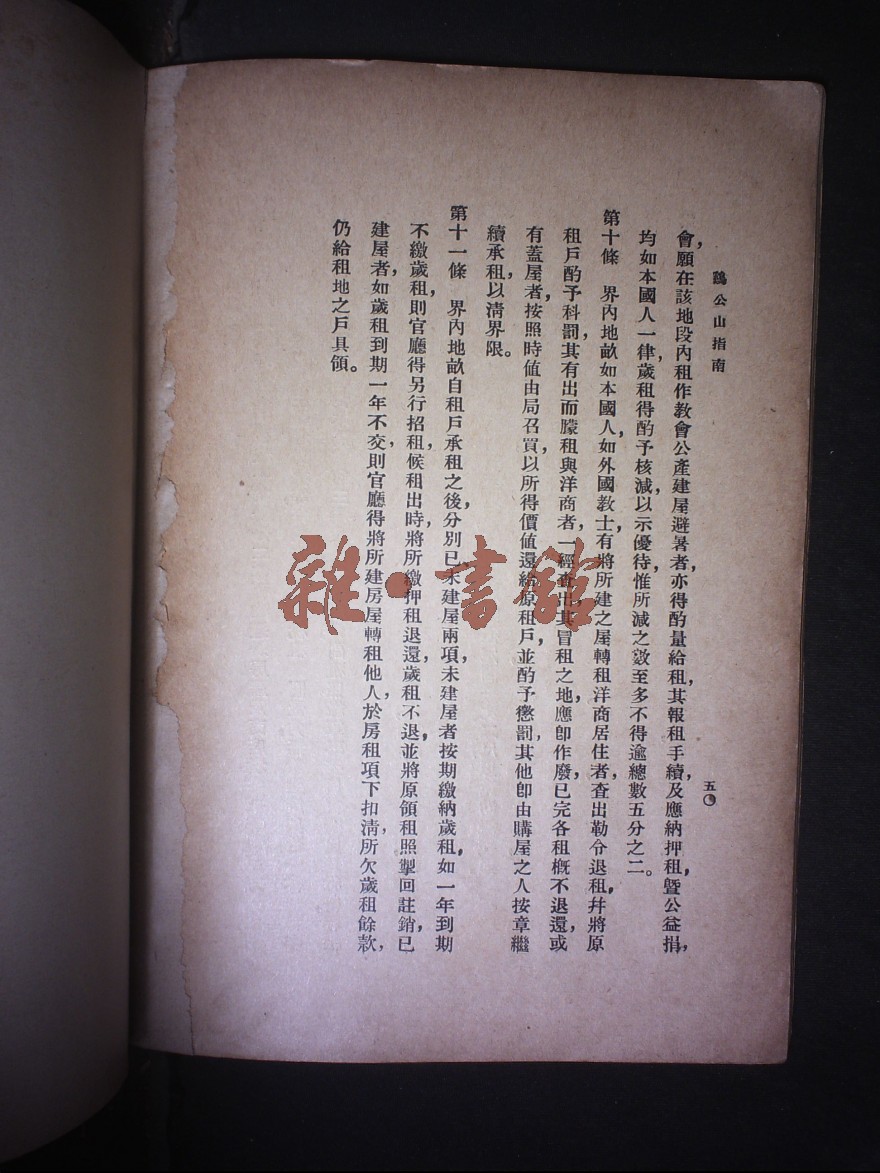 鷄公山指南
五〇
會，願在該地段內租作教會公產建屋避暑者，亦得酌量給租，其報租手續，及應納押租，曁公益捐，
均如本國人一律，歲租得酌予核減，以示優待，惟所減之數至多不得逾總數五分之二。
第十條　界內地畝如本國人，如外國教士，有將所建之屋轉租洋商居住者，查出勒令退租，幷將原
租戶酌予科罰，其有出而朦租與洋商者，一經查出，其冒租之地，應卽作廢，已完各租槪不退還，或
有蓋屋者，按照時値由局召買，以所得價値還給原租戶，並酌予懲罰，其他卽由購屋之人按章繼
續承租，以淸界限。
第十一條　界內地畝自租戶承租之後，分別已未建屋兩項，未建屋者按期繳納歲租，如一年到期
不繳歲租，則官廳得另行招租，候租出時，將所繳押租退還，歲租不退，並將原領租照掣回註銷，已
建屋者，如歲租到期一年不交，則官廳得將所建房屋轉租他人，於房租項下扣淸，所欠歲租餘款，
仍給租地之戶具領。
雜·書館